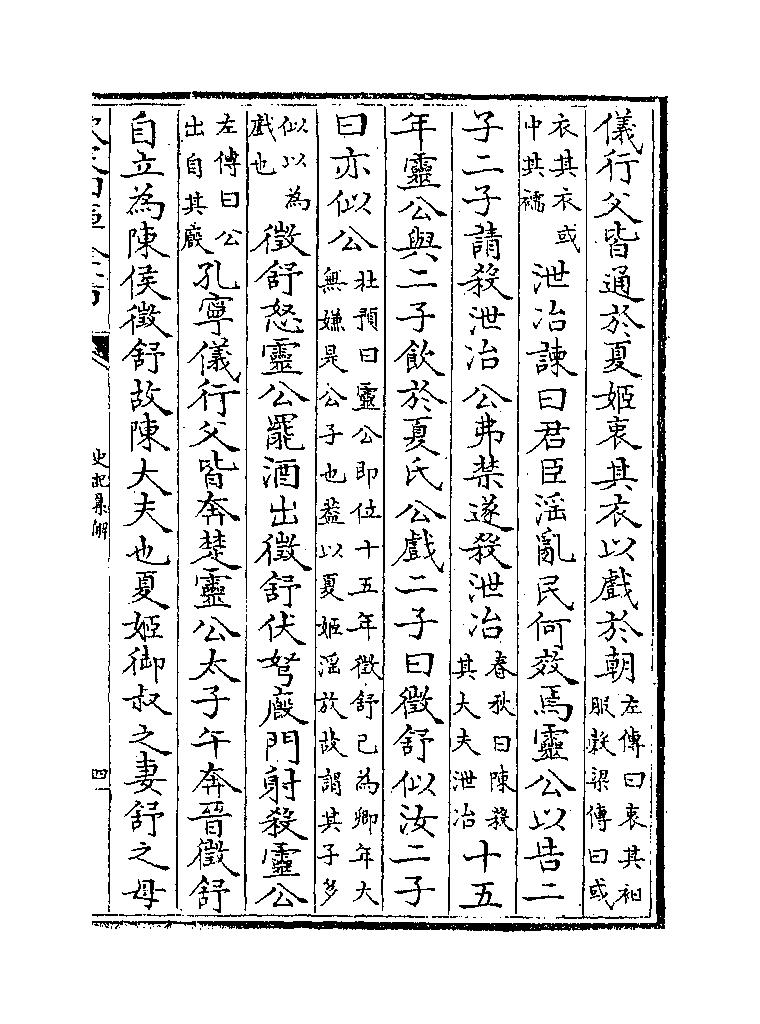 儀行父皆通於夏姬衷其衣以戲於朝左傳曰衷其衵服穀梁傳曰或
衣其衣或中其襦泄冶諫曰君臣淫亂民何效焉靈公以告二
子二子請殺泄冶公弗禁遂殺泄冶春秋曰陳殺其大夫泄冶十五
年靈公與二子飲於夏氏公戲二子曰徵舒似汝二子
曰亦似公杜預曰靈公即位十五年徵舒已為卿年大無嫌是公子也葢以夏姬淫放故謂其子多
似以為戲也徵舒怒靈公罷酒出徵舒伏弩廄門射殺靈公
左傳曰公出自其廄孔寧儀行父皆奔楚靈公太子午奔晉徵舒
自立為陳侯徵舒故陳大夫也夏姬御叔之妻舒之母
史記集解